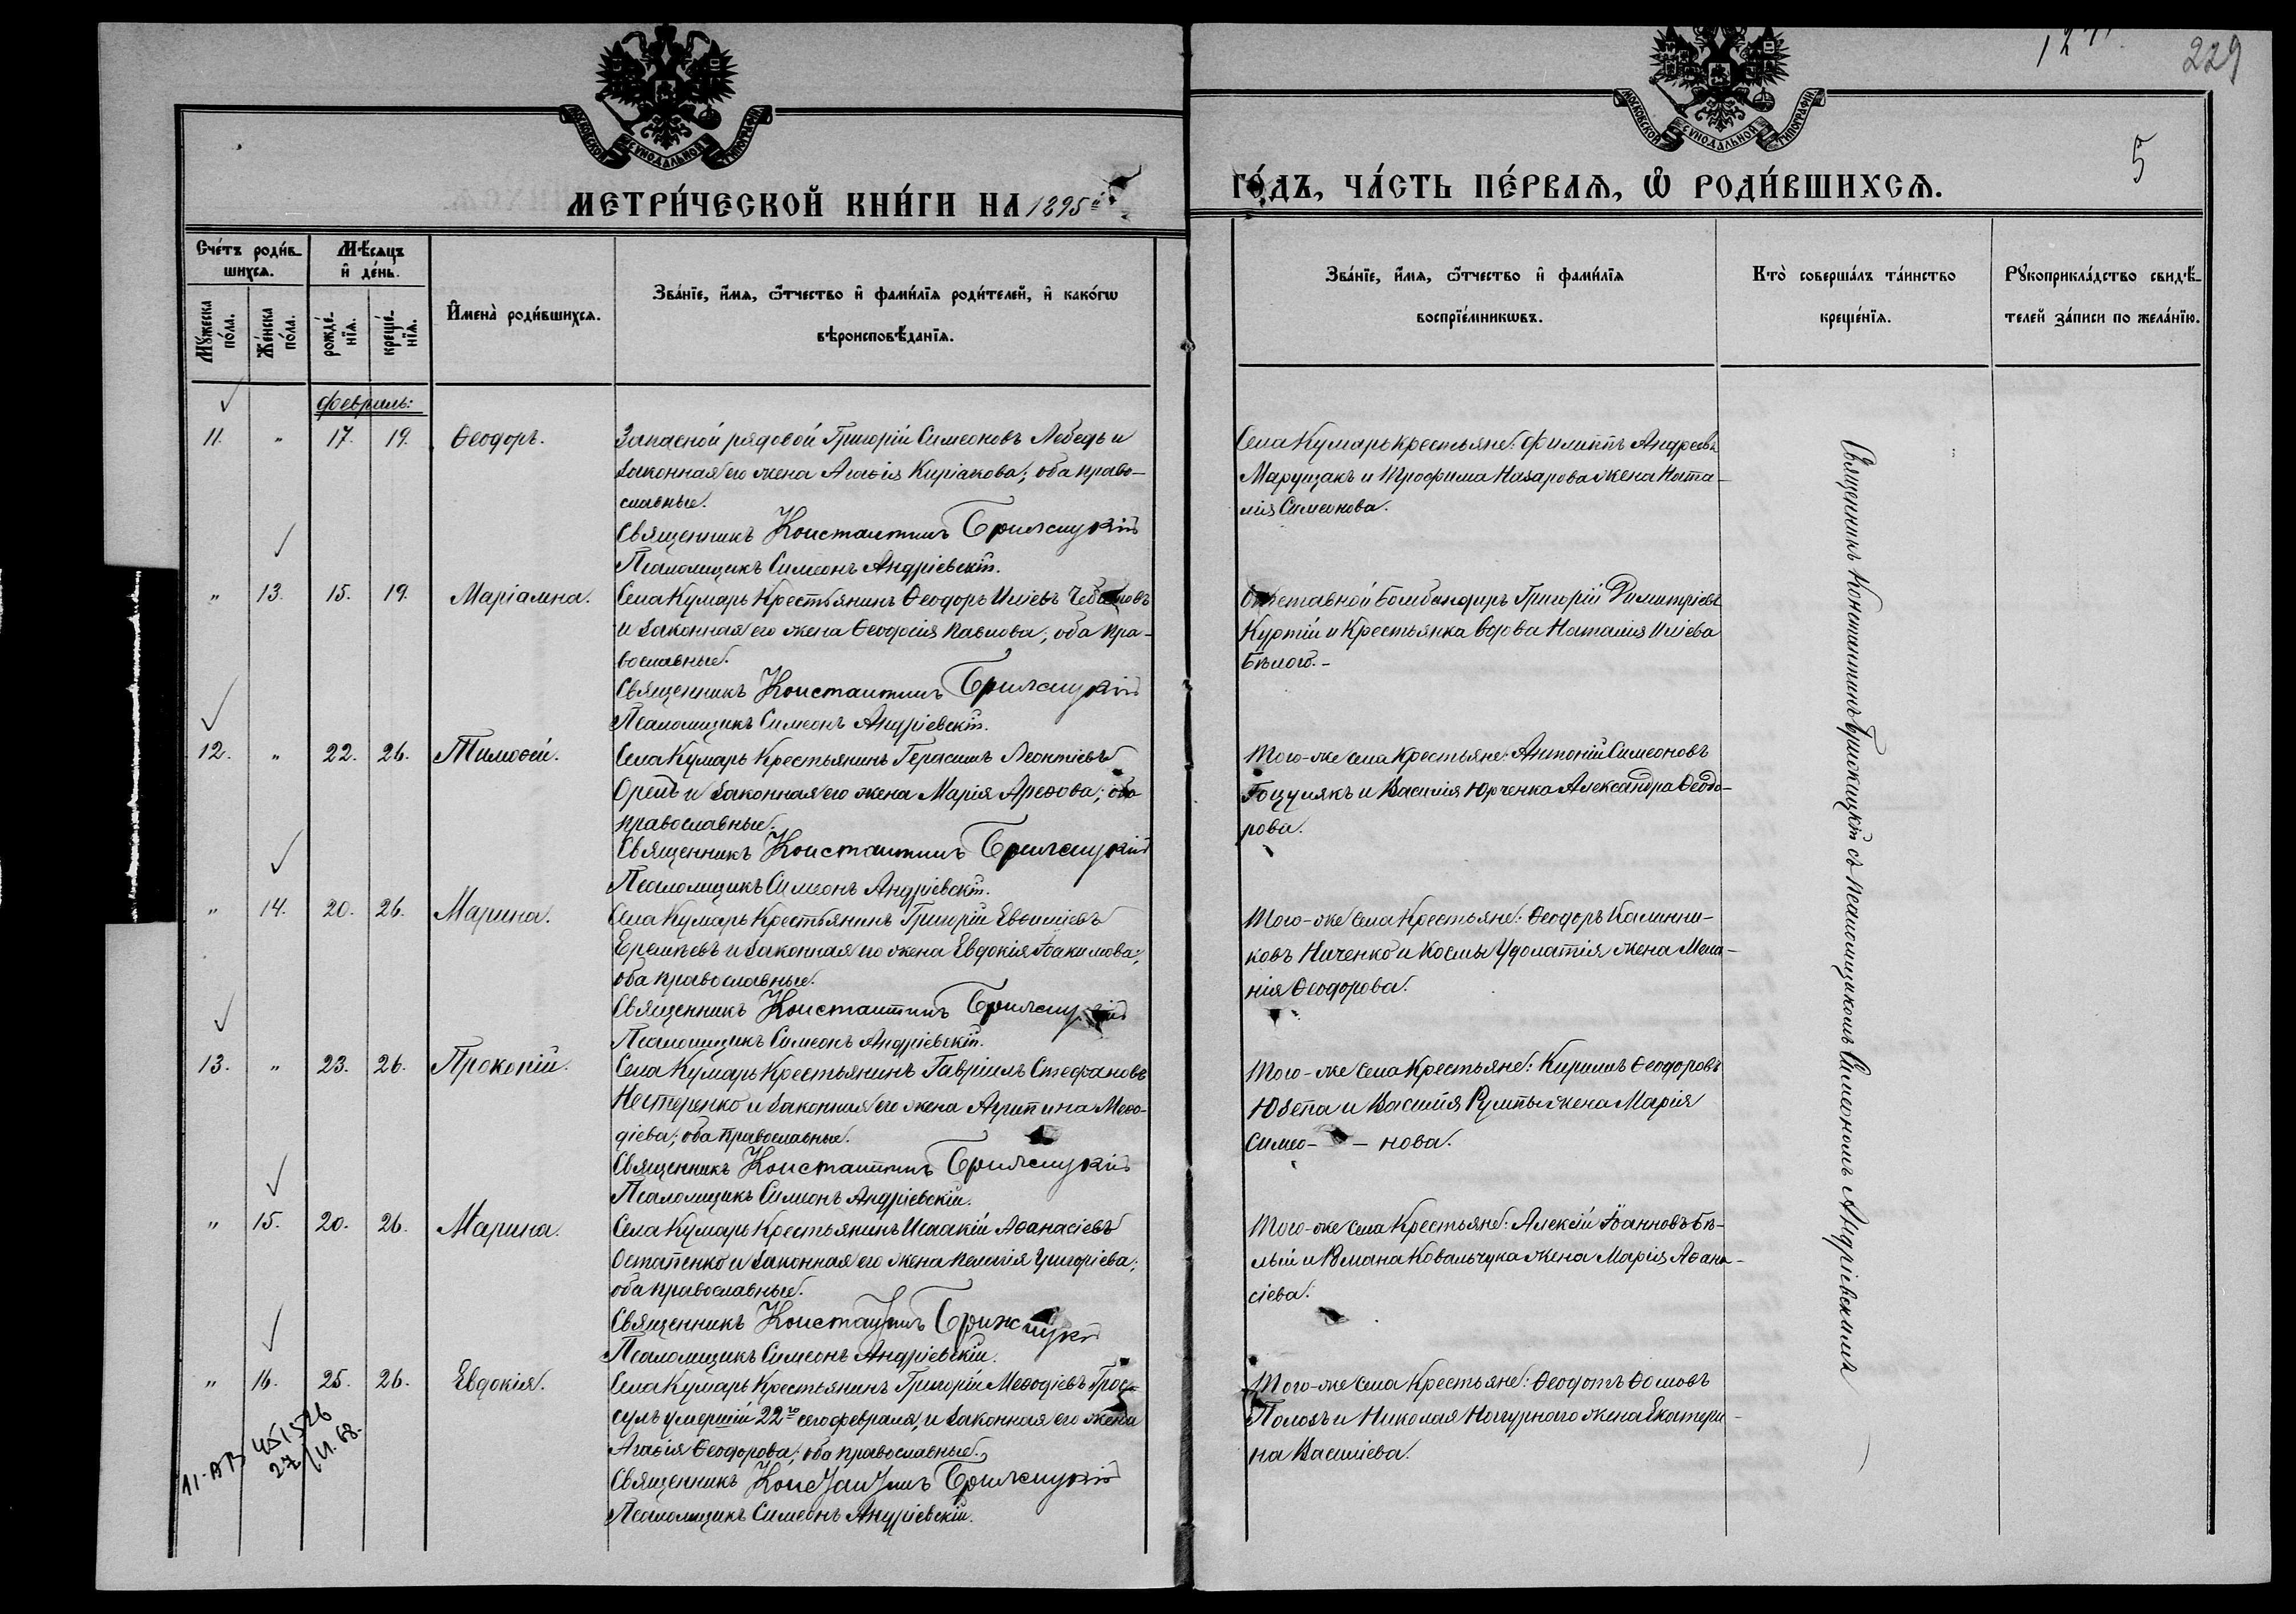 229
5
МОСКОВСКОЙ СѴНОДАЛЬНОЙ ТИПОГРАФІИ
МОСКОВСКОЙ СѴНОДАЛЬНОЙ ТИПОГРАФІИ
МЕТРИ́ЧЕСКОЙ КНИ́ГИ НА 1895й
ГО́ДЪ, ЧА́СТЬ ПЕ́РВАѦ, Ѡ҆ РОДИ́ВШИХСѦ.
Сче́тъ роди́в-
шихсѧ.
Мѣ́сѧцъ
и҆ де́нь.
Мꙋ́жеска по́ла.
Же́нска по́ла.
рожде́-нїѧ.
креще́-нїѧ.
И҆мена̀ роди́вшихсѧ.
Зва́нїе, и҆́мѧ, ѻ҆́тчество и҆ фами́лїѧ роди́телей, и҆ како́гѡ
вѣроисповѣ́данїѧ.
Зва́нїе, и҆́мѧ, ѻ҆́тчество и҆ фами́лїѧ
воспрїе́мникѡвъ.
Кто̀ соверша́лъ та́инство
креще́нїѧ.
Рꙋкоприкла́дство свидѣ́-
телей за́писи по жела́нїю.
Февраль:
11. " 17. 19. Ѳеодоръ.
Запасной рядовой Григорій Симеоновъ Лебедь и
законная его жена Агаѳія Киріакова; оба право-
славные.
Священникъ Константинъ Брижицкій
Псаломщикъ Симеонъ Андріевскій.
Села Кумарь крестьяне: Филиппъ Андреевъ
Марущакъ и Трофима Назарова жена Ната-
лія Симеонова.
" 13. 15. 19. Маріамна.
Села Кумарь Крестьянинъ Ѳеодоръ Иліевъ
и законная его жена Ѳеодосія Павлова; оба пра-
вославные.
Священникъ Константинъ Брижицкій
Псаломщикъ Симеонъ Андріевскій.
Отставной Бомбандиръ Григорій Димитріевъ
Куртій и Крестьянка вдова Наталія Иліева
Бѣлого.-
12. " 22. 26. Тимоѳей.
Села Кумарь Крестьянинъ Герасимъ Леонтіевъ
и законная его жена Марія Ареѳова; оба
православные.
Священникъ Константинъ Брижицкій
Псаломщикъ Симеонъ Андріевскій.
Того-же села Крестьяне: Антоній Симеоновъ
Гоцулякъ и Василія Юрченка Александра Ѳеодо-
рова.
" 14. 20. 26. Марина.
Села Кумарь Крестьянинъ Григорій Евѳиміевъ
и законная его жена Евдокія Іоакимова;
оба православные.
Священникъ Константинъ Брижицкій
Псаломщикъ Симеонъ Андріевскій.
Того-же села Крестьяне: Ѳеодоръ Калинни-
ковъ Ниченко и Космы Удолатія жена Мела-
нія Ѳеодорова.
13. " 23. 26. Прокопій.
Села Кумарь Крестьянинъ Гавріилъ Стефановъ
Нестеренко и законная его жена Агрипина Меѳо-
діева; оба православные.
Священникъ Константинъ Брижицкій
Псаломщикъ Симеонъ Андріевскій.
Того-же села Крестьяне: Кириллъ Ѳеодоровъ
Юзепа и Василія жена Марія
Симео- - нова.
" 15. 20. 26. Марина.
Села Кумарь Крестьянинъ Исаакій Аѳанасіевъ
Остапенко и законная его жена Пелагія Григоріева;
оба православные.
Священникъ Константинъ Брижицкій
Псаломщикъ Симеонъ Андріевскій.
Того-же села Крестьяне: Алексій Іоанновъ Бѣ-
лый и Романа Ковальчука жена Марія Аѳана-
сіева.
" 16. 25. 26. Евдокія.
Села Кумарь Крестьянинъ Григорій Меѳодіевъ Грос-
сулъ умершій 22го сего февраля, и законная его жена
Агаѳія Ѳеодорова; оба православные.
Священникъ Константинъ Брижицкій
Псаломщикъ Симеонъ Андріевскій.
Того-же села Крестьяне: Ѳеодотъ Ѳомовъ
Полозъ и Николая жена Екатери-
на Василіева.
Священникъ Константинъ Брижицкій съ псаломщикомъ Симеономъ Андріевскимъ
11-АВ 451526
27/VI.68.